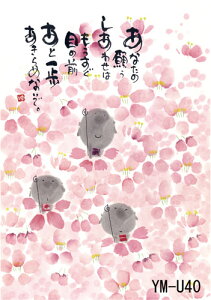 あなたの
願う
しあわせは
もうすぐ
目の前
あと一歩
あきらめないで。
YM-U40